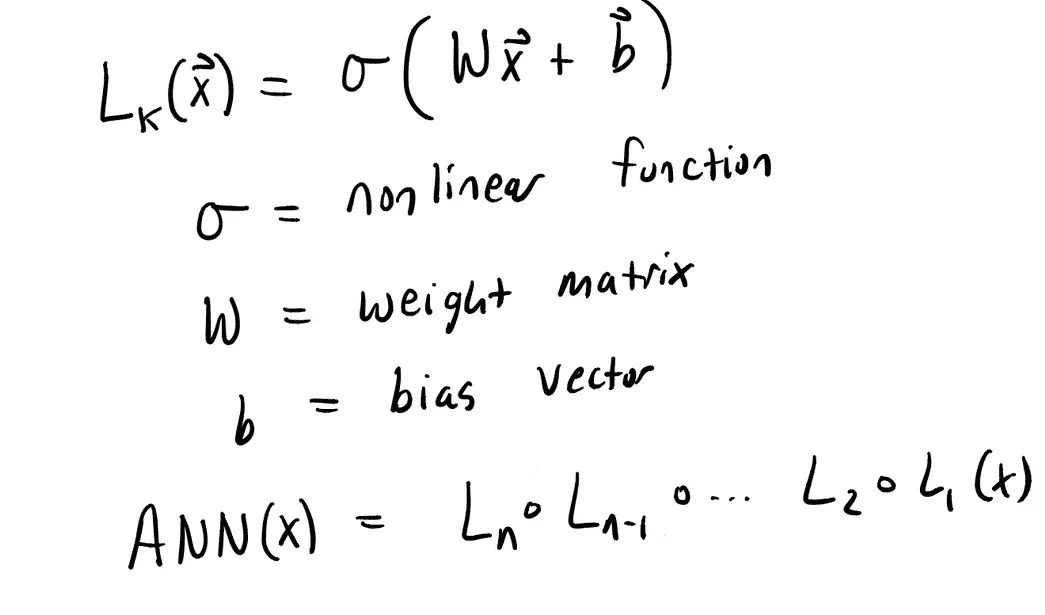 L_K(x⃗) = σ(Wx⃗ + b⃗)
σ = nonlinear function
W = weight matrix
b = bias vector
ANN(x) = L_n ∘ L_{n-1} ∘ ... L_2 ∘ L_1(x)